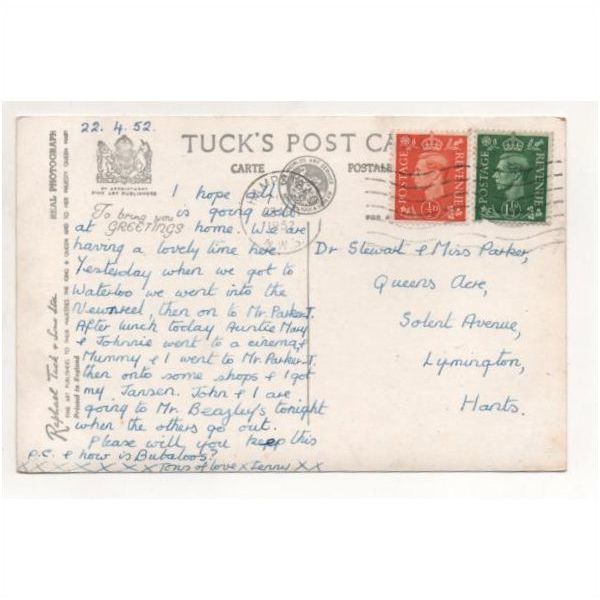 22.4.52.
TUCK'S POST CA
CARTE POSTALE
BY APPOINTMENT
FINE ART PUBLISHERS
REAL PHOTOGRAPH
Raphael Tuck & Sons Ltd
FINE ART PUBLISHERS TO THEIR MAJESTIES THE KING & QUEEN AND TO HER MAJESTY QUEEN MARY
Printed in England
To bring you
GREETINGS
I hope all
is going well
at home. We are
having a lovely time here.
Yesterday when we got to
Waterloo we went into the
Newsreel, then on to Mr. Parker-J.
After lunch today Auntie Mary
& Johnnie went to a cinema &
Mummy & I went to Mr. Parker-J.
then onto some shops & I got
my Jansen. John & I are
going to Mr. Beazley's tonight
when the others go out.
Please will you keep this
p.c. & how is Bubaloos?
x x x x x x x x Tons of love x Jenny x x
HAMPSTEAD
1952
N.W.3
POSTAGE REVENUE
½D
POSTAGE REVENUE
Dr Stewart & Miss Parker,
Queens Acre,
Solent Avenue,
Lymington,
Hants.